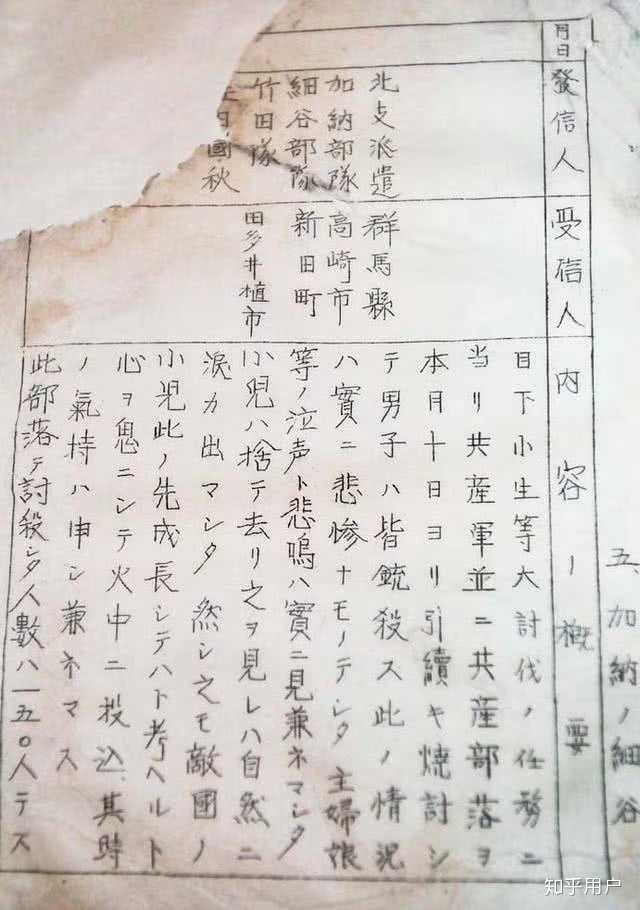 五、加納ノ細谷
月日
發信人
受信人
内容ノ概要
北支派遣
加納部隊
細谷部隊
竹田隊
國秋
群馬縣
高崎市
新田町
田多井植市
目下小生等大討伐ノ任務ニ
当リ共産軍並ニ共産部落ヲ
本月十日ヨリ引續キ燒討シ
テ男子ハ皆銃殺ス此ノ情況
ハ實ニ悲惨ナモノテシタ主婦娘
等ノ泣声ト悲鳴ハ實ニ見兼ネマシタ
小児ハ捨テ去リ之ヲ見レハ自然ニ
淚カ出マシタ然シ之モ敵國ノ
小児此ノ先成長シテハト考ヘルト
心ヲ鬼ニシテ火中ニ投込、其時
ノ氣持ハ申シ兼ネマス
此部落テ討殺シタ人數ハ一五〇人テス
知乎用户